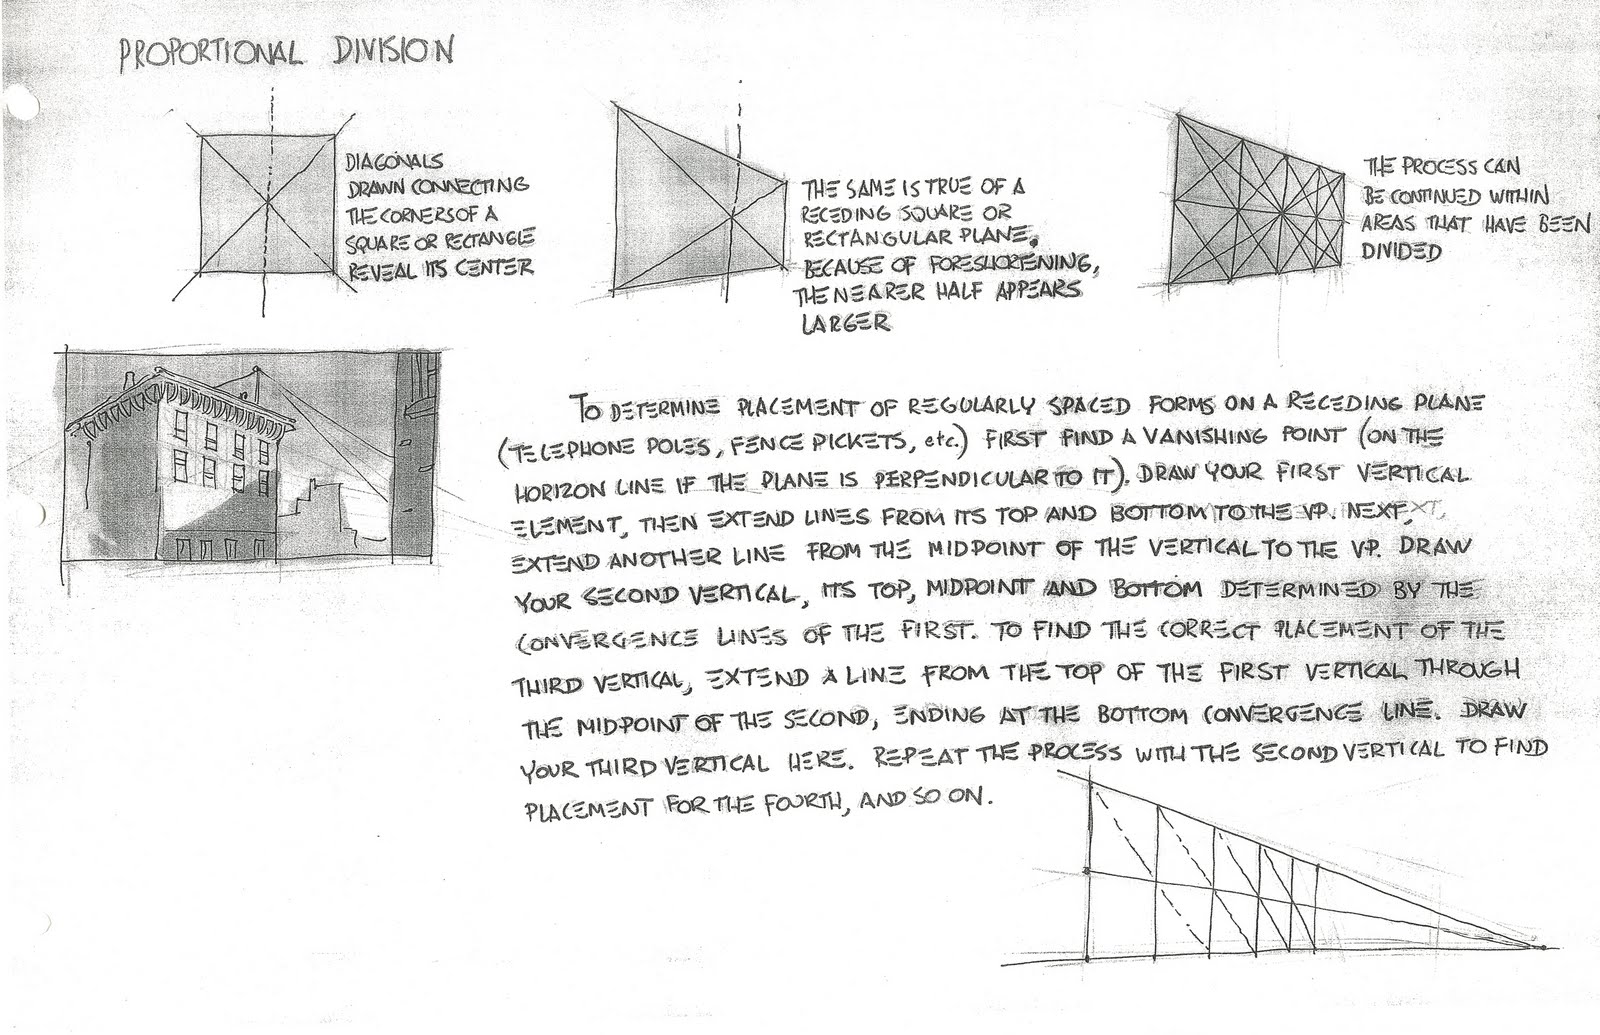 PROPORTIONAL DIVISION
DIAGONALS
DRAWN CONNECTING
THE CORNERS OF A
SQUARE OR RECTANGLE
REVEAL ITS CENTER
THE SAME IS TRUE OF A
RECEDING SQUARE OR
RECTANGULAR PLANE.
BECAUSE OF FORESHORTENING,
THE NEARER HALF APPEARS
LARGER
THE PROCESS CAN
BE CONTINUED WITHIN
AREAS THAT HAVE BEEN
DIVIDED
TO DETERMINE PLACEMENT OF REGULARLY SPACED FORMS ON A RECEDING PLANE
(TELEPHONE POLES, FENCE PICKETS, etc.) FIRST FIND A VANISHING POINT (ON THE
HORIZON LINE IF THE PLANE IS PERPENDICULAR TO IT). DRAW YOUR FIRST VERTICAL
ELEMENT, THEN EXTEND LINES FROM ITS TOP AND BOTTOM TO THE VP. NEXT,
EXTEND ANOTHER LINE FROM THE MIDPOINT OF THE VERTICAL TO THE VP. DRAW
YOUR SECOND VERTICAL, ITS TOP, MIDPOINT AND BOTTOM DETERMINED BY THE
CONVERGENCE LINES OF THE FIRST. TO FIND THE CORRECT PLACEMENT OF THE
THIRD VERTICAL, EXTEND A LINE FROM THE TOP OF THE FIRST VERTICAL THROUGH
THE MIDPOINT OF THE SECOND, ENDING AT THE BOTTOM CONVERGENCE LINE. DRAW
YOUR THIRD VERTICAL HERE. REPEAT THE PROCESS WITH THE SECOND VERTICAL TO FIND
PLACEMENT FOR THE FOURTH, AND SO ON.